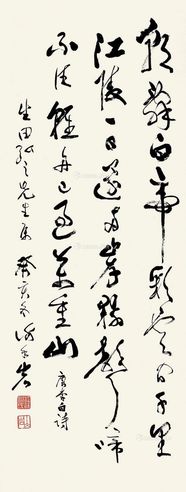 朝辭白帝彩雲間千里
江陵一日還兩岸猿聲啼
不住輕舟已過萬重山 唐李白詩
田 先生屬 癸亥冬